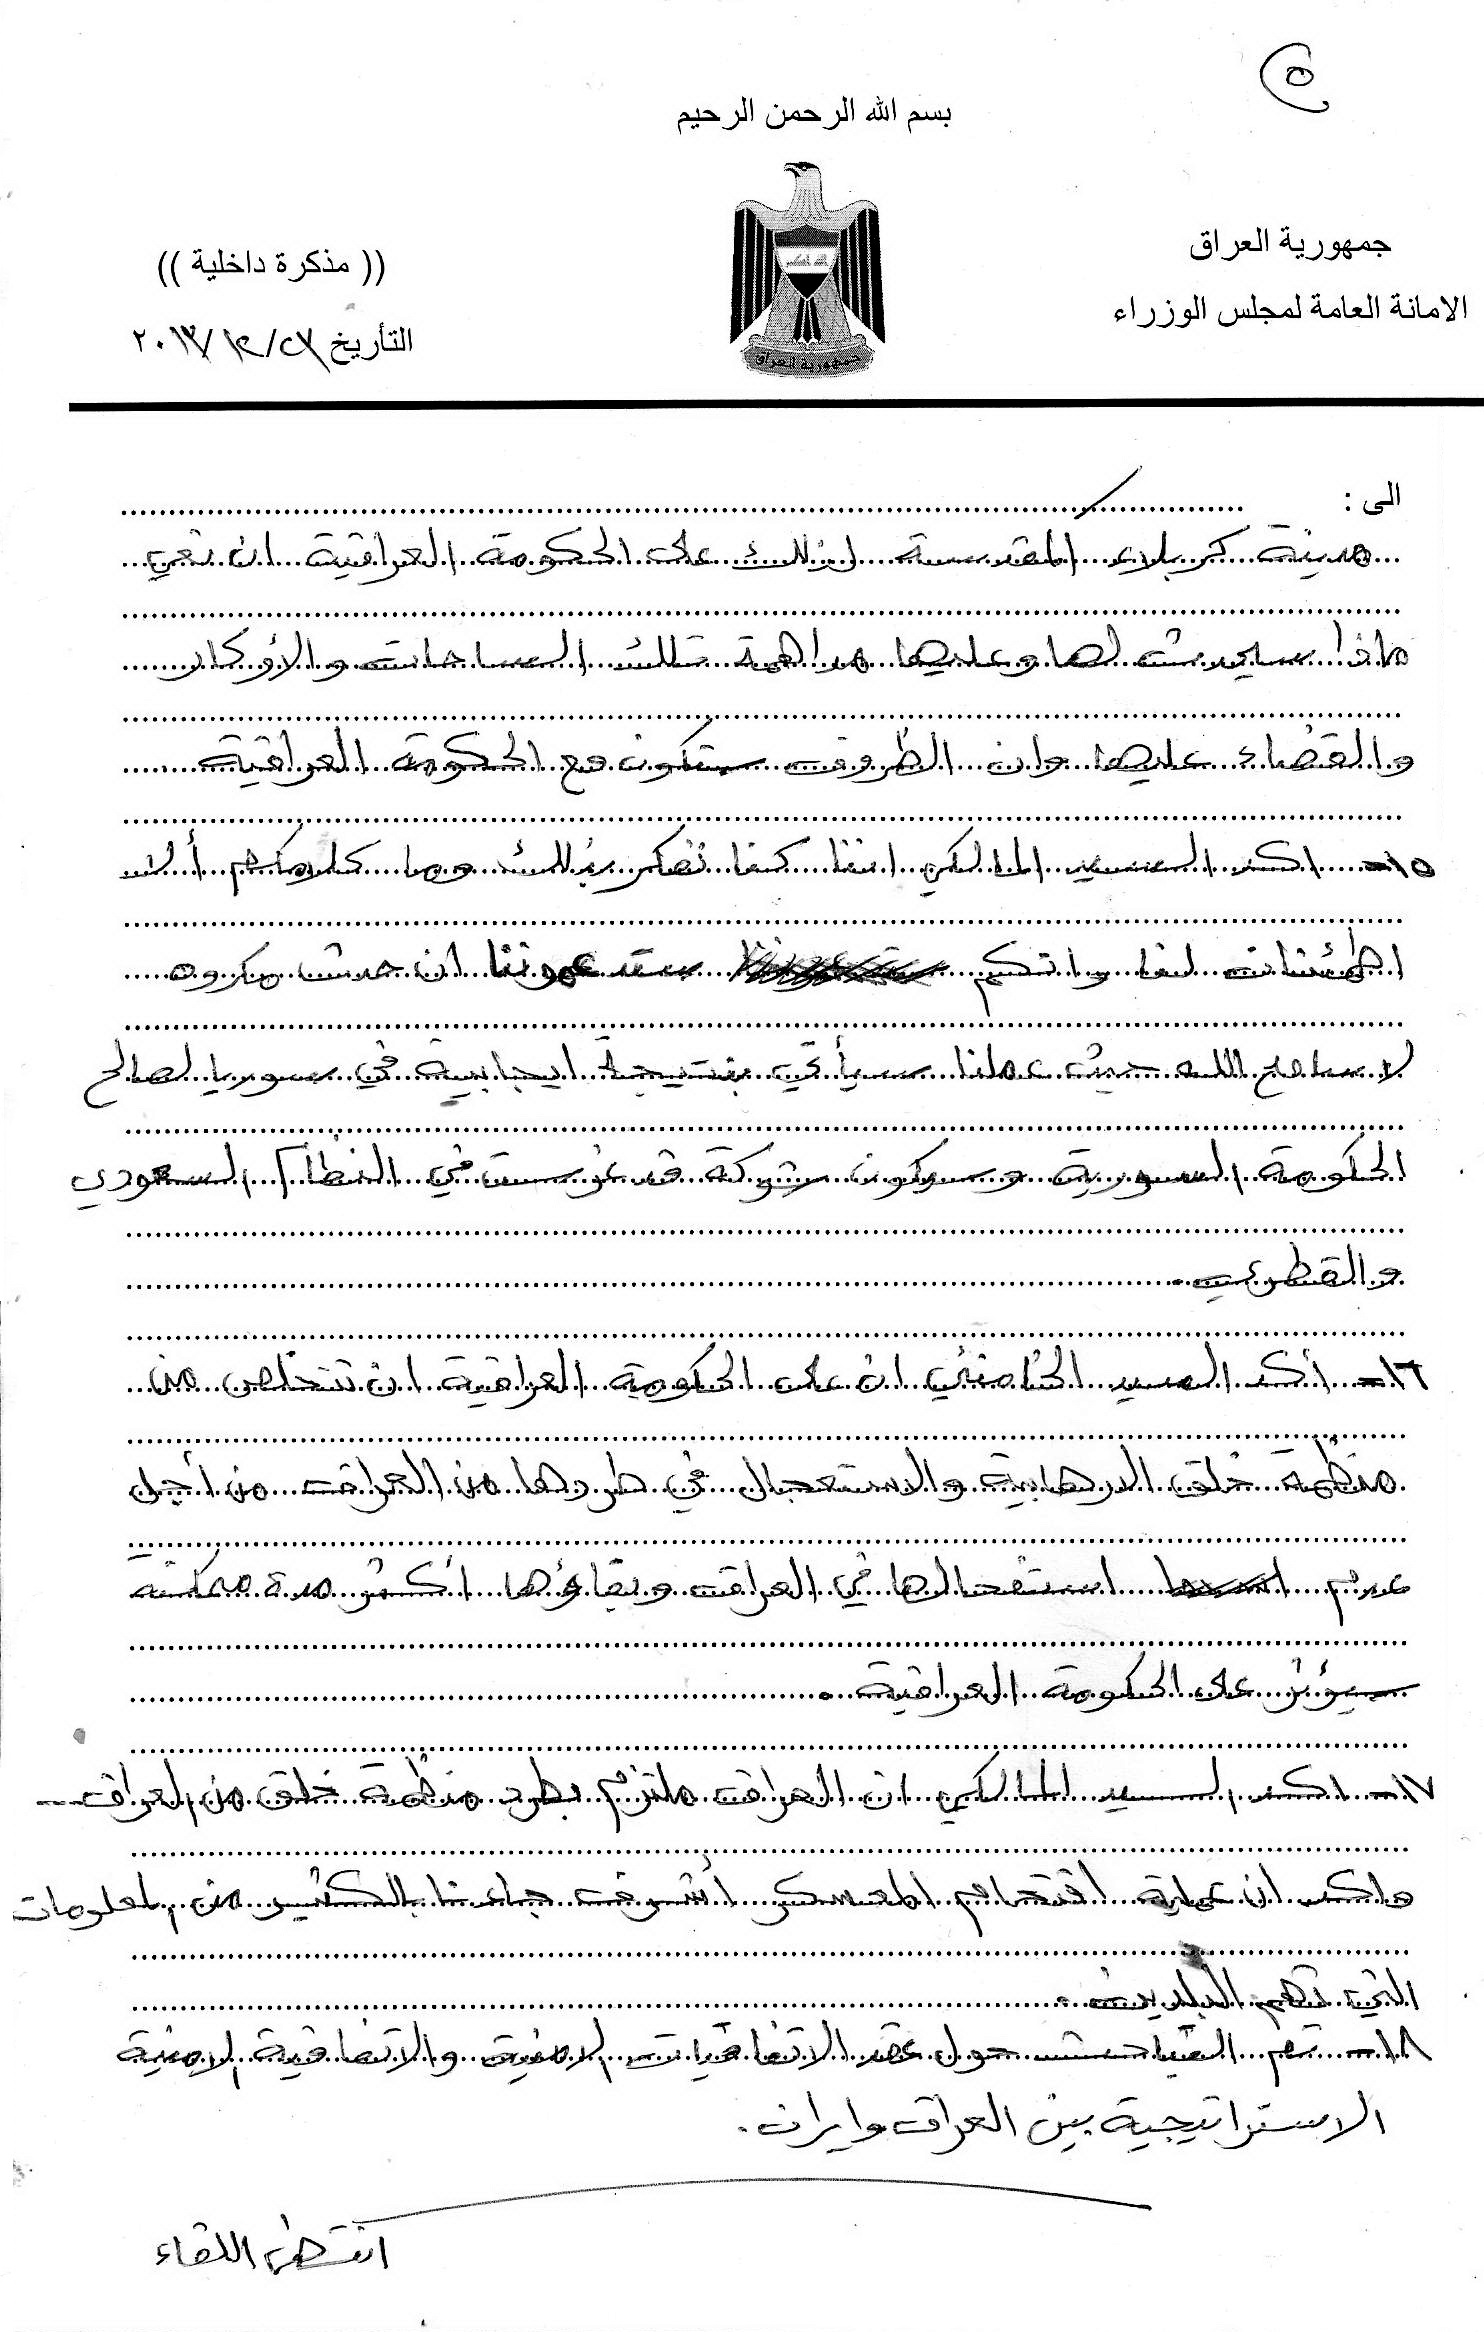 ٥
بسم الله الرحمن الرحيم
جمهورية العراق
(( مذكرة داخلية ))
الامانة العامة لمجلس الوزراء
التأريخ ٢٠١٣/١٢/
جمهورية العراق
الى :
مدينة كربلاء المقدسة لذلك على الحكومة العراقية ان تعي
ماذا سيحدث لها وعليها مداهمة تلك الساحات والأوكار
والقضاء عليها وان الظروف ستكون مع الحكومة العراقية
١٥- اكد السيد المالكي اننا كنا نفكر بذلك وما كلامكم ألا
اطمئنان لنا وانكم ستدعموننا ان حدث مكروه
لا سامح الله حيث عملنا سيأتي بنتيجة ايجابية في سوريا لصالح
الحكومة السورية وسيكون شوكة قد غرست في النظام السعودي
والقطري .
١٦- أكد السيد الخامنئي ان على الحكومة العراقية ان تتخلص من
منظمة خلق الارهابية والاستعجال في طردها من العراق من أجل
عدم استفحالها في العراق وبقاؤها أكثر مدة ممكنة
سيؤثر على الحكومة العراقية .
١٧- اكد السيد المالكي ان العراق ملتزم بطرد منظمة خلق من العراق
واكد ان عملية اقتحام المعسكر اشرف جاءتنا بالكثير من المعلومات
التي تهم البلدين .
١٨- تم التباحث حول عقد الاتفاقيات الامنية والاتفاقية الامنية
الاستراتيجية بين العراق وايران .
انتهى اللقاء